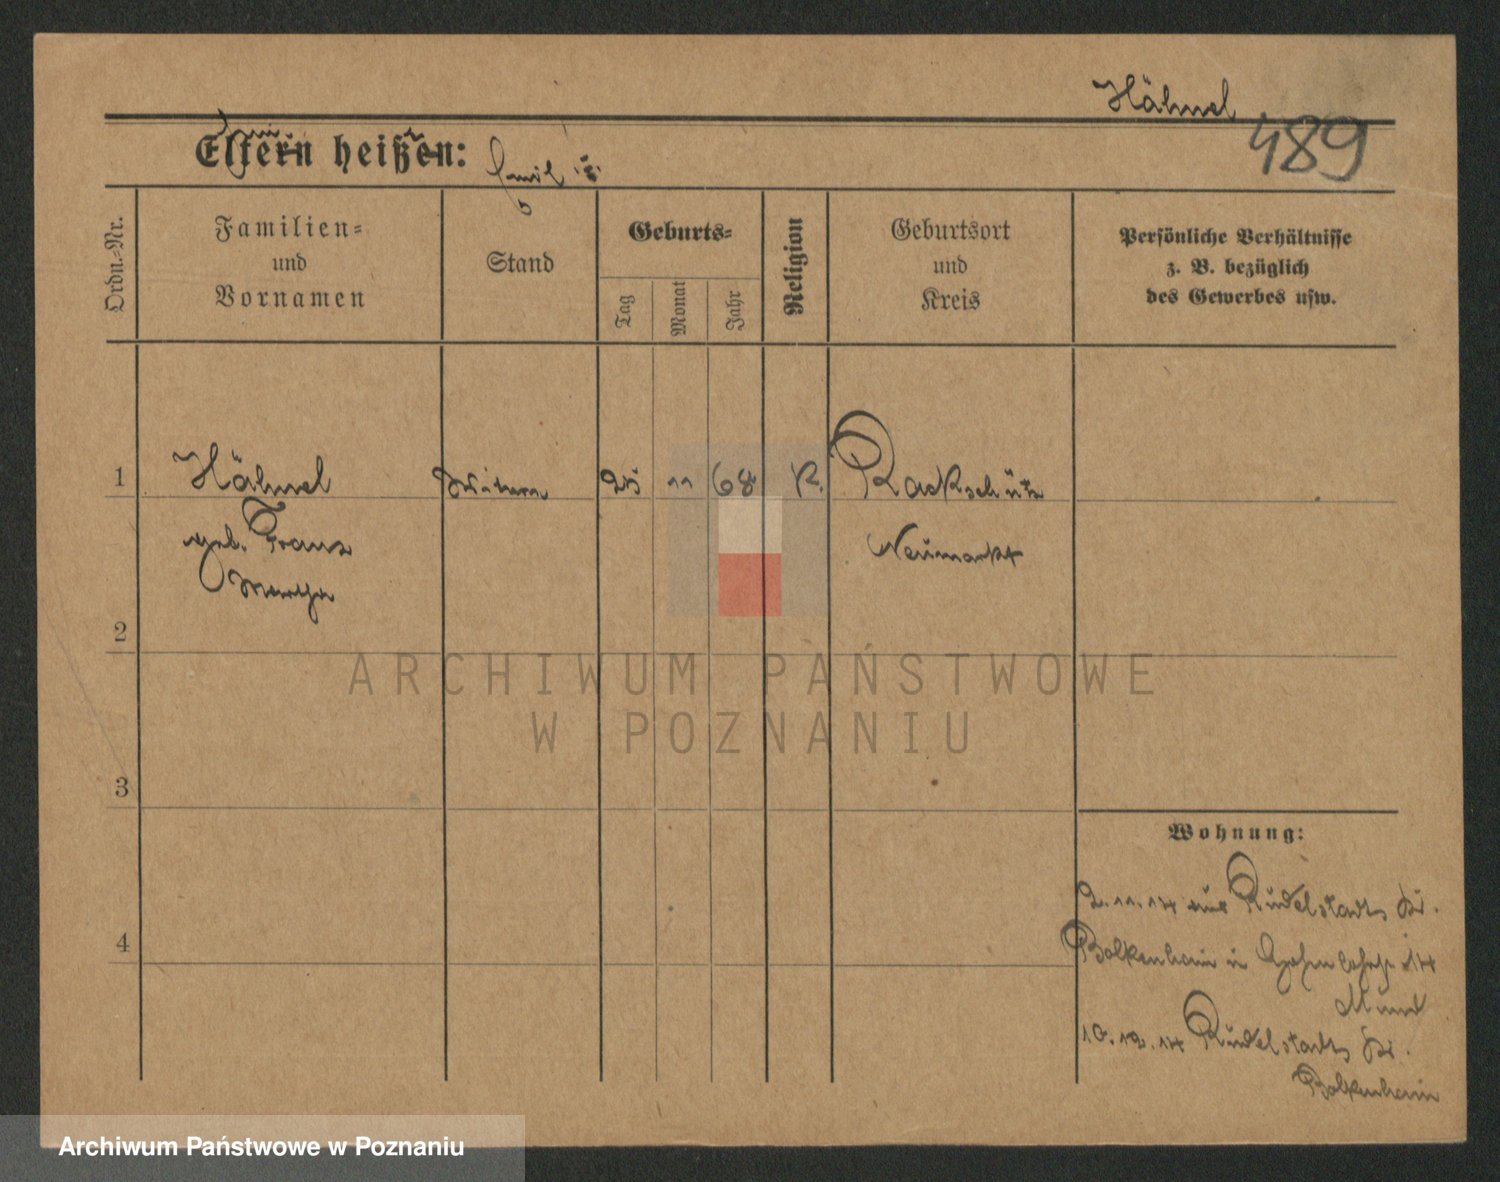 Hähnel
489
Eltern heißen:
Emil
Ordn.-Nr.
Familien-
und
Vornamen
Stand
Geburts-
Tag
Monat
Jahr
Religion
Geburtsort
und
Kreis
Persönliche Verhältnisse
z. B. bezüglich
des Gewerbes usw.
1
Hähnel
Witwe
25
11
68
K.
Rackschütz
geb. Franz
Neumarkt
Martha
2
3
4
Wohnung:
2.11.14 aus Rudelstadt, Kr.
Bolkenhain in 14
10.12.14 Rudelstadt, Kr.
Bolkenhain
ARCHIWUM PAŃSTWOWE
W POZNANIU
Archiwum Państwowe w Poznaniu